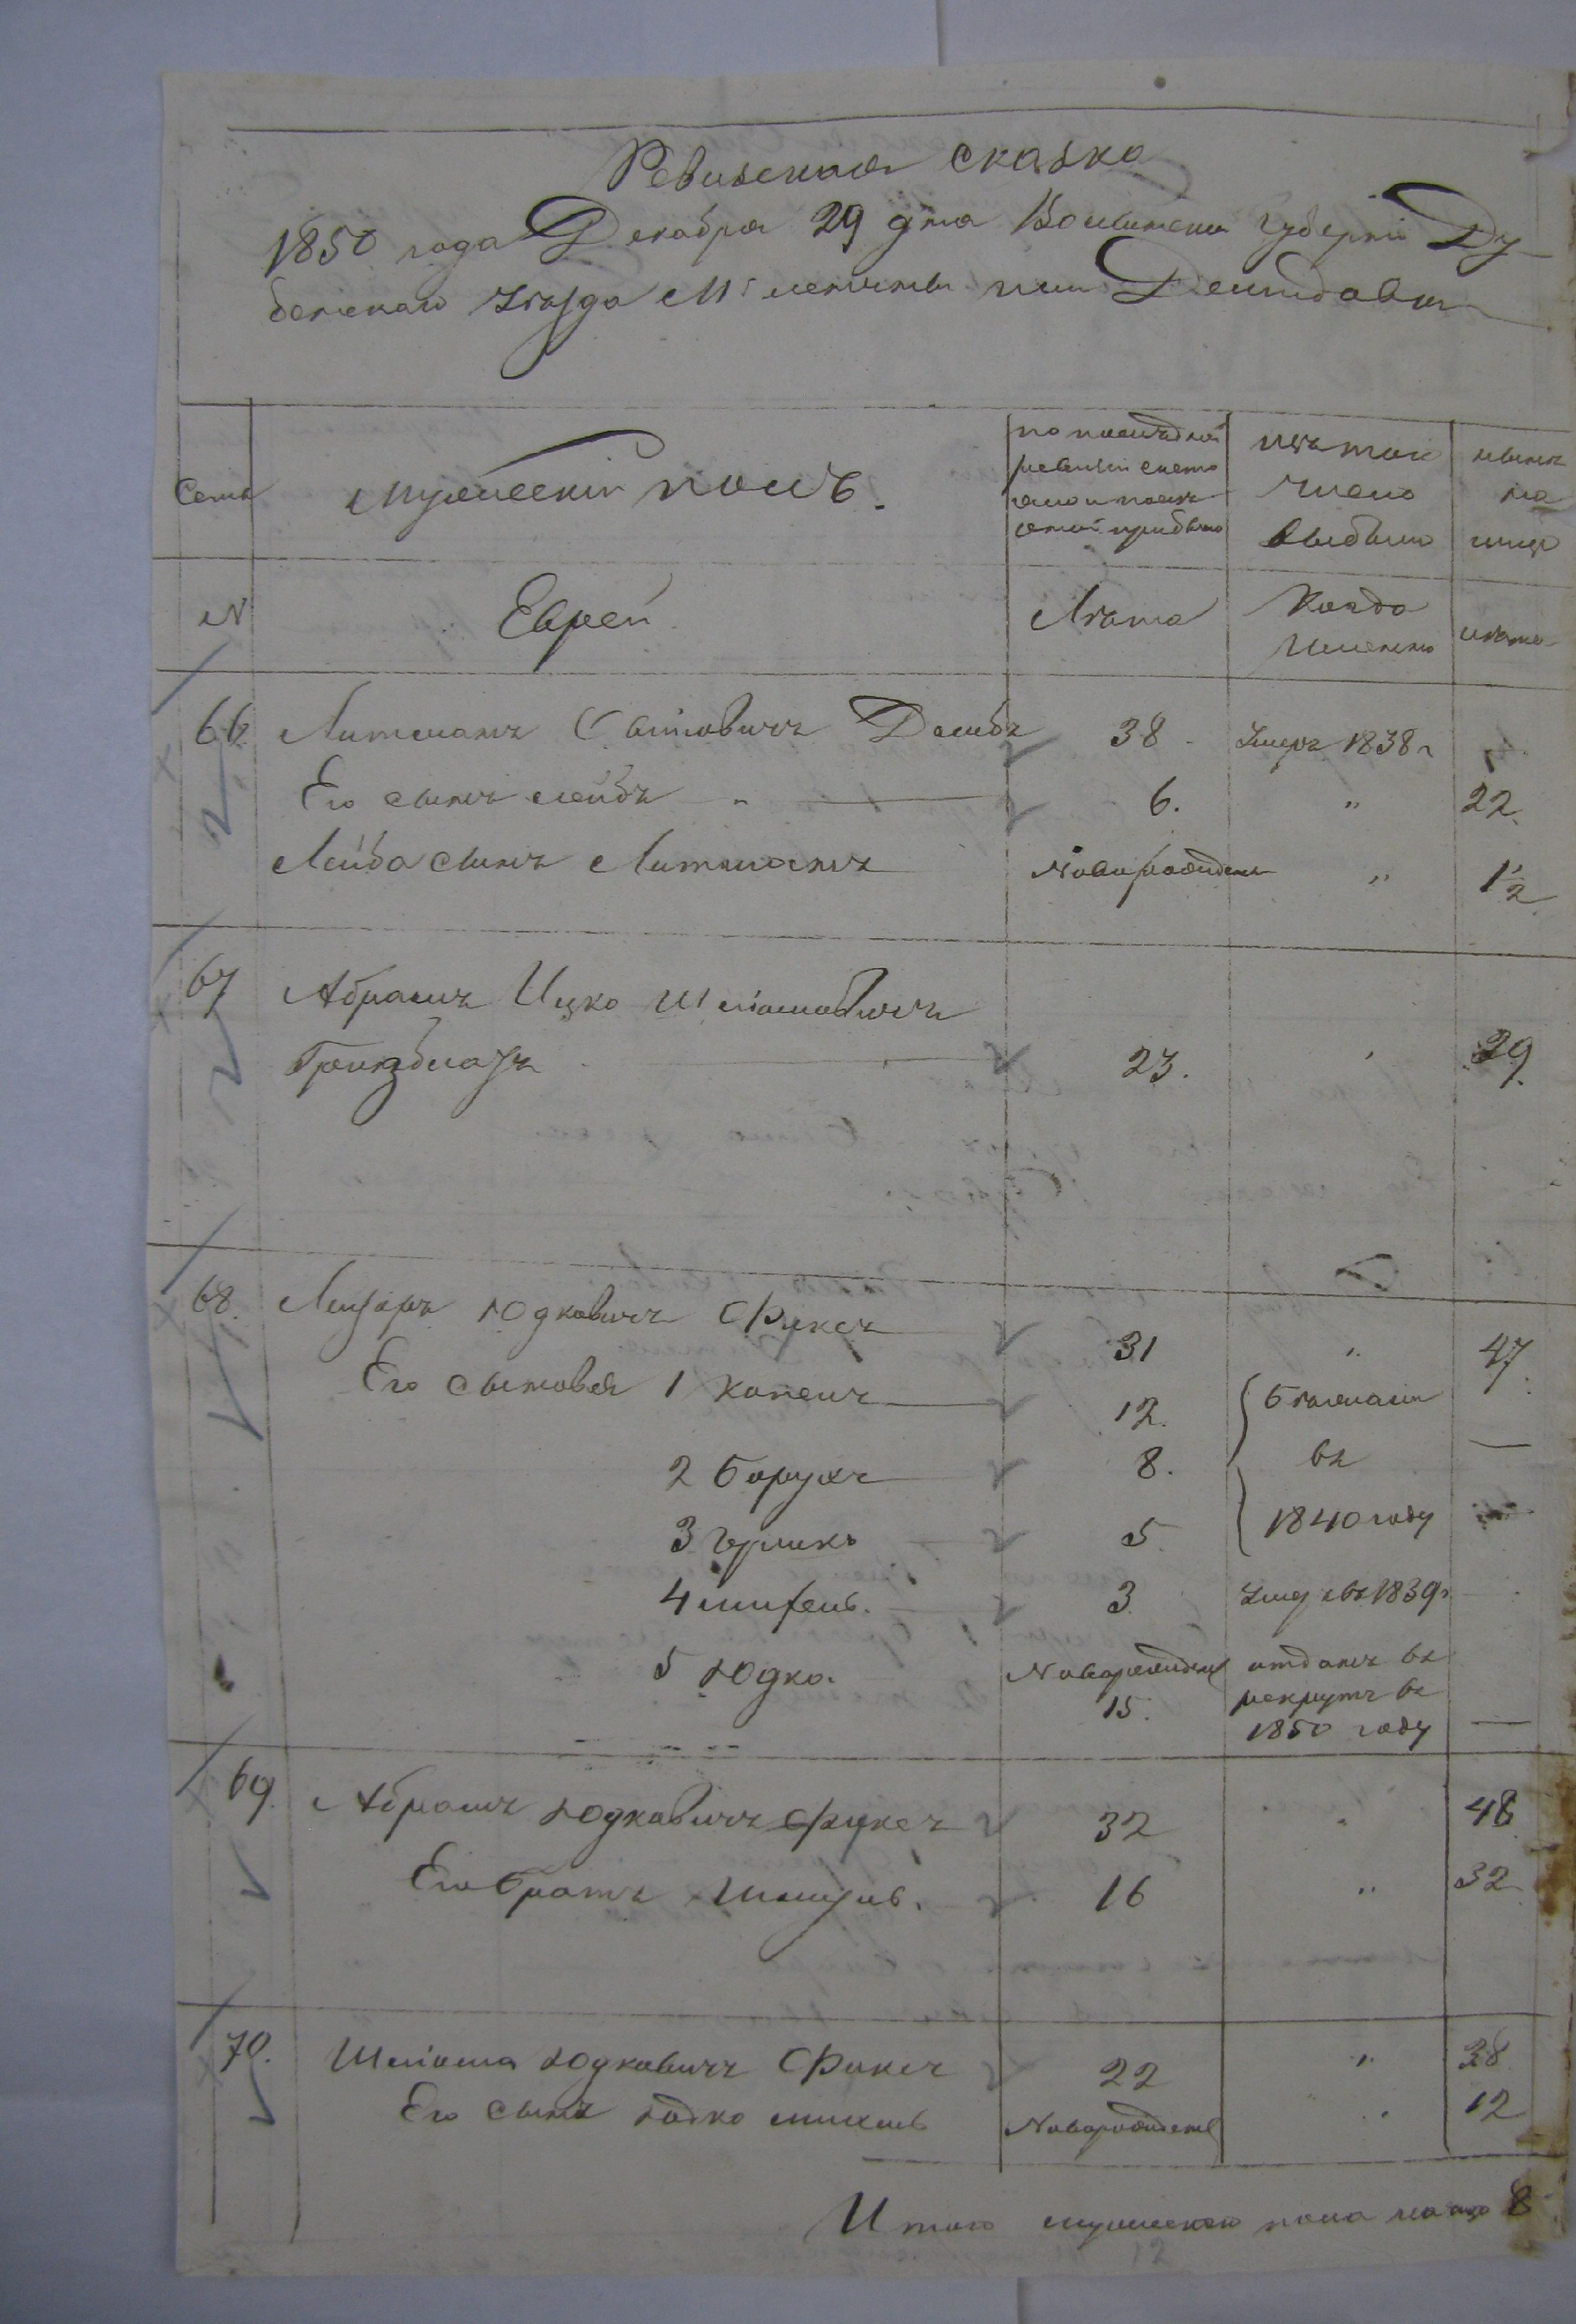 Ревизская сказка
1850 года Декабря 29 дня Волынской Губернii Ду
бенскаго уезда Мѣстечка или Демидовки
Семьи
Мужескiй полъ.
по последней
ревизiи состо
яло и после
оной прибыло
изъ того
числа
выбыло
нынѣ
на
лицо
№
Евреи
Лѣта
Когда
Именно
лѣта
66. Литманъ Дембъ 38 Умеръ 1838 г
Его сынъ Лейбъ " 6. " 22.
Лейба сынъ Литманъ Новорожденъ " 1½
67 Абрамъ Ицко Шлiомовичъ
Гринзблатъ 23. " 29.
68. Лейзоръ Юдковичъ Фиксъ 31 " 47.
Его сыновья 1 Копелъ 12. Бѣжали
2 Борухъ 8. въ —
3 Гершко 5. 1840 году
4 3. Умеръ въ 1839 г
5 Юдко. Новорожденъ отданъ въ
15. рекрутъ въ
1850 году —
69. Абрамъ Юдковичъ Фиксъ 32 " 48
Его братъ 16 " 32
70. Шлiома Юдковичъ Фиксъ 22 " 38
Его сынъ Юдко Михель Новорожденъ " 12
Итого мужеска пола на лицо 8
12